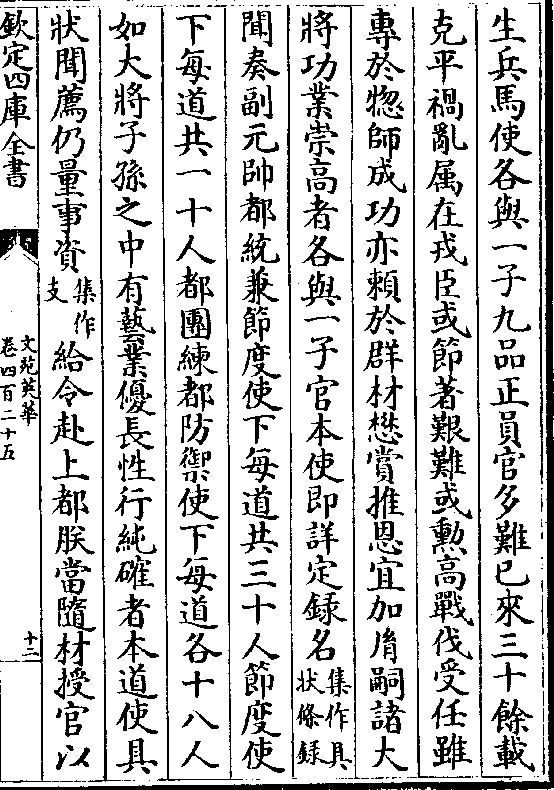 生兵馬使各與一子九品正員官多難已來三十餘載
克平禍亂属在戎臣或節著艱難或勲高戰伐受任雖
專於惣師成功亦頼於群材懋賞推恩宜加胤嗣諸大
將功業崇高者各與一子官本使即詳定録名集作具狀條録
聞奏副元帥都統兼節度使下每道共三十人節度使
下每道共一十人都團練都防禦使下每道各十八人
如大將子孫之中有藝業優長性行純確者本道使具
狀聞薦仍量事資集作支給令赴上都朕當隨材授官以
欽定四庫全書
文苑英華
卷四百二十五
十二